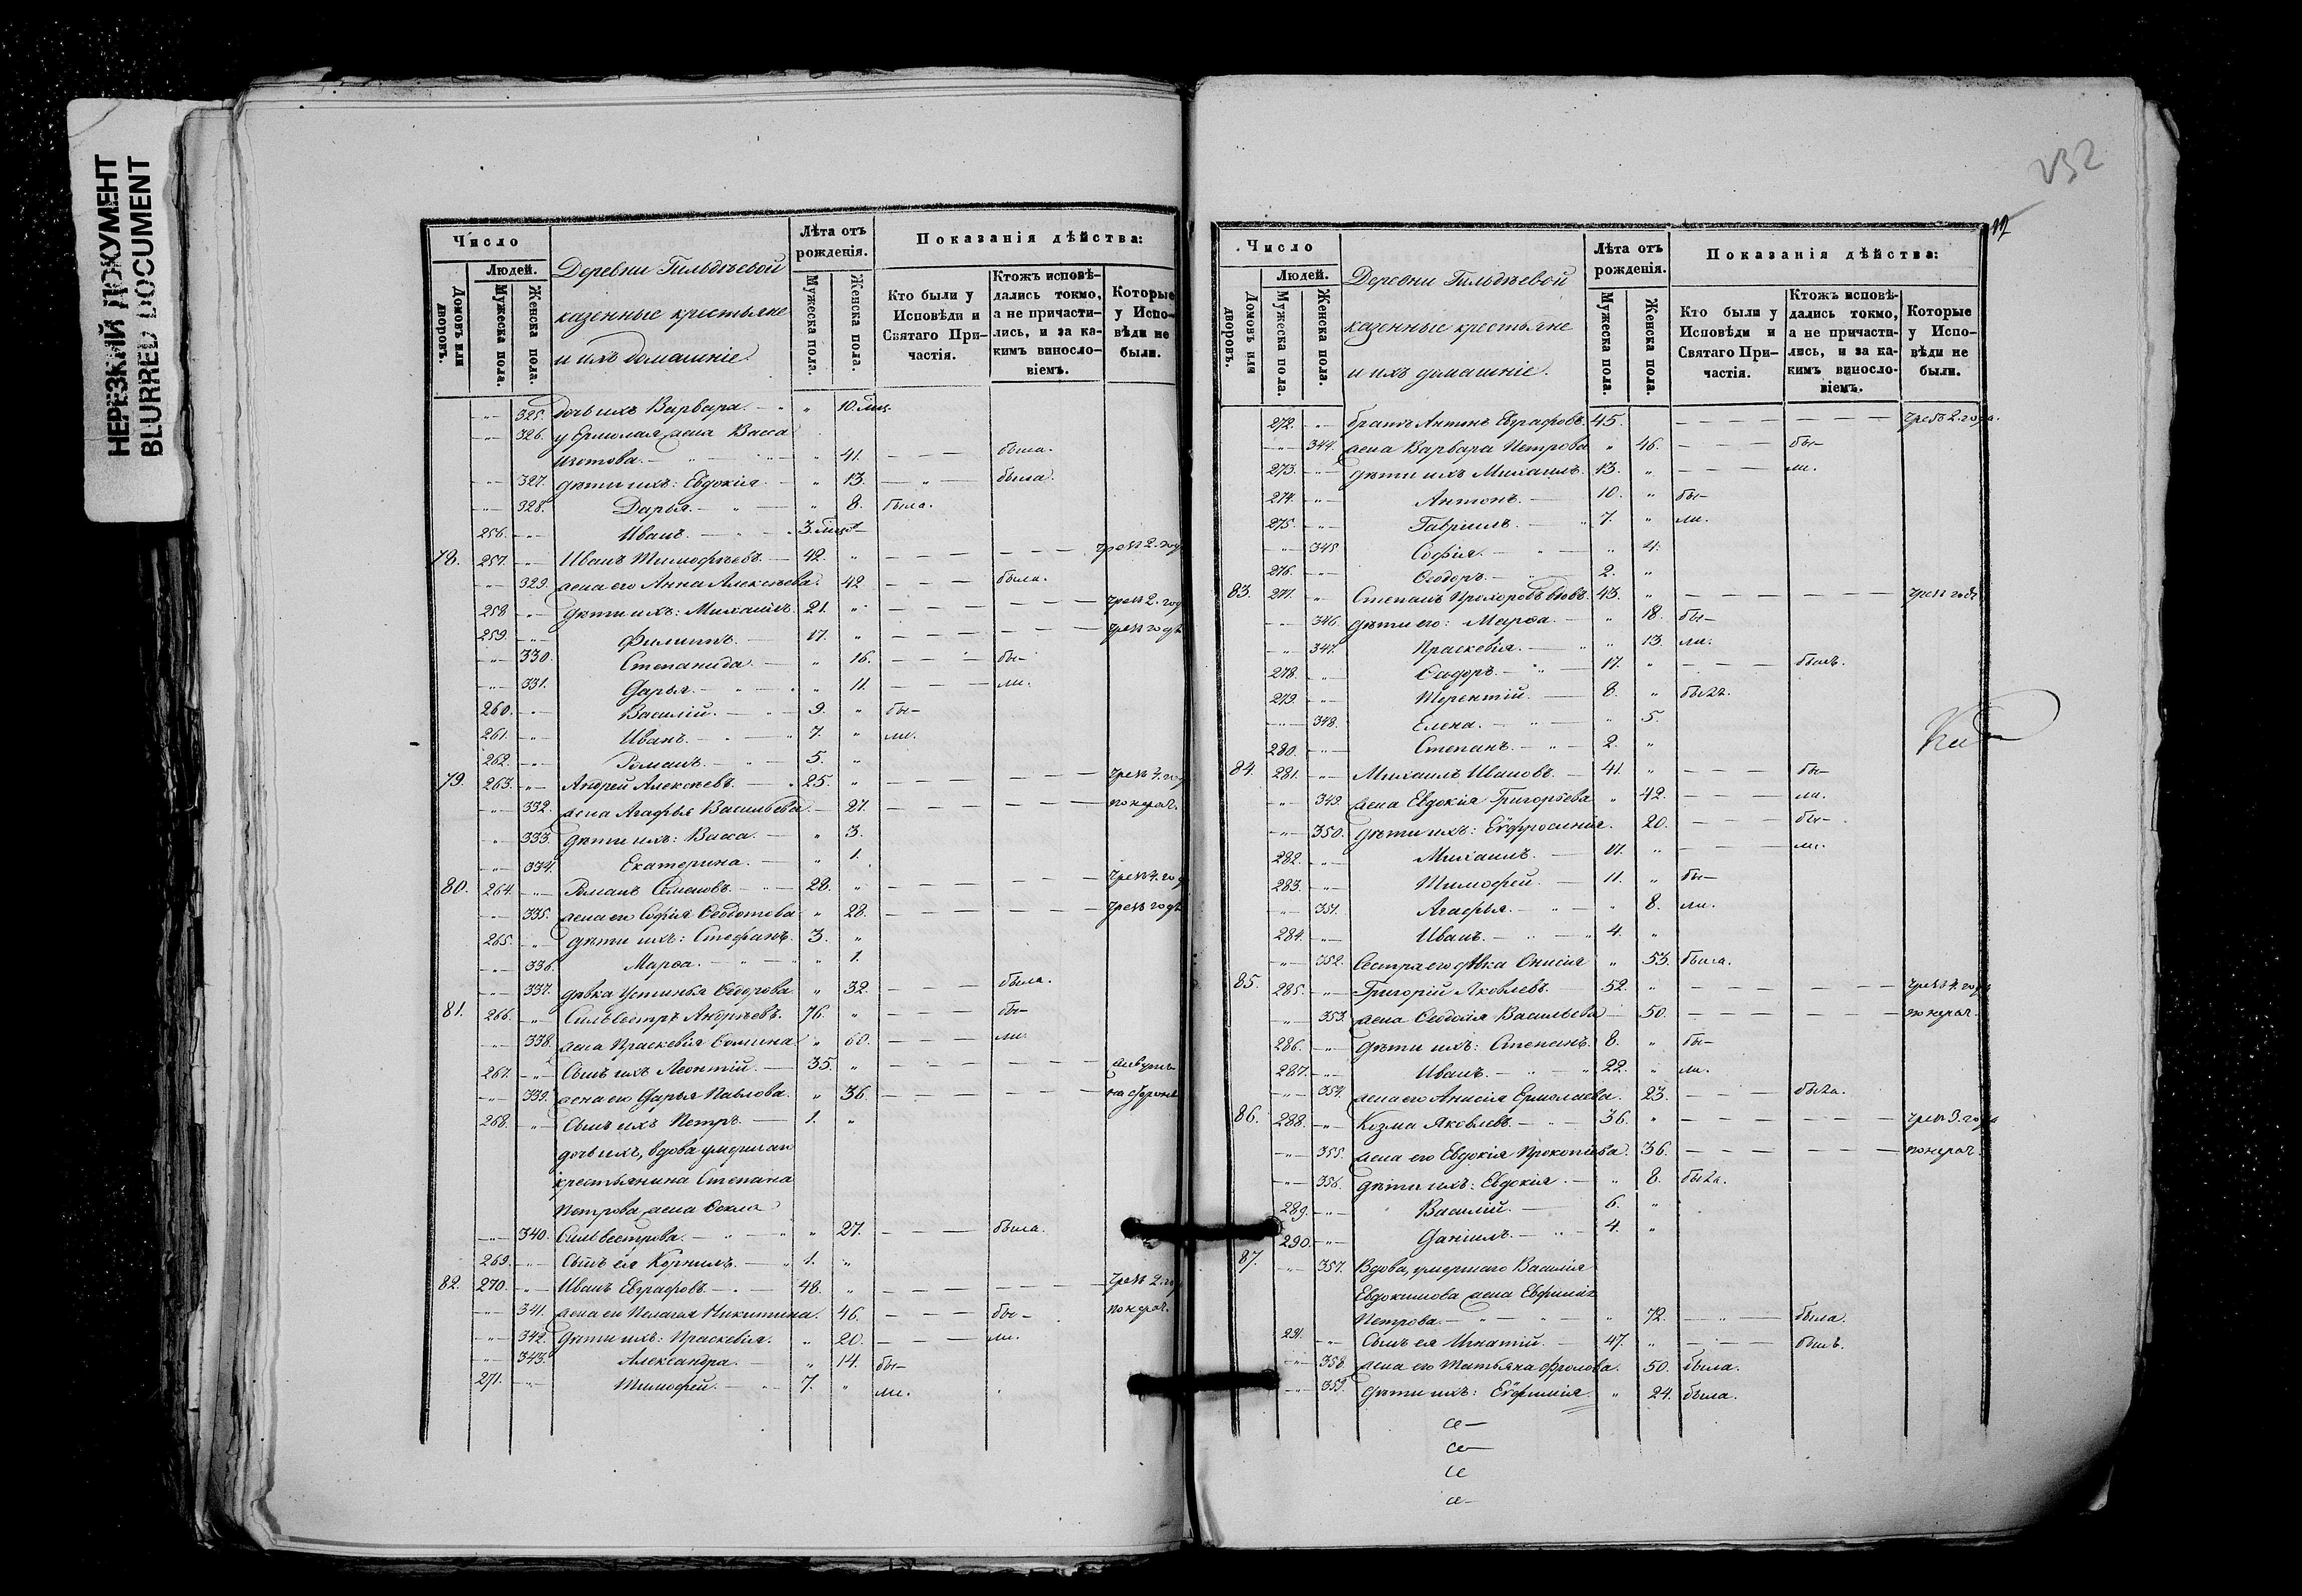 НЕРЕЗКИЙ ДОКУМЕНТ
BLURRED DOCUMENT
Число
Людей.
Домовъ или дворовъ.
Мужеска пола.
Женска пола.
Деревни Гильдѣевой
казенные крестьяне
и ихъ домашніе.
Лѣта отъ рожденія.
Мужеска пола.
Женска пола.
Показанія дѣйства:
Кто были у Исповѣди и Святаго Причастія.
Ктожъ исповѣдались токмо, а не причастились, и за какимъ винословіемъ.
Которые у Исповѣди не были.
325. дочь ихъ Варвара. 10.
326. у Ермолая жена Васса
Изотова. 41. была.
327. дѣти ихъ: Евдокія 13. была.
328. Дарья. 8. была.
256. Иванъ. 3.
78. 257. Иванъ Тимофѣевъ. 42. чрез 2. год
329. жена его Анна Алексѣева. 42. была.
258 дѣти ихъ: Михаилъ. 21. чрез 2. год
259. Филиппъ. 17. чрез годъ
330. Степанида. 16. бы-
331. Дарья. 11. ли.
260. Василій. 9. бы-
261. Иванъ. 7. ли.
262. Романъ. 5.
79. 263. Андрей Алексѣевъ. 25. чрез 4. год
332. жена Агафья Васильева. 27. понерач.
333. дѣти ихъ: Васса. 3.
334. Екатерина. 1.
80. 264. Романъ Семеновъ. 28. чрез 4. год
335. жена его Софія Ѳедотова 28. чрез годъ
265. дѣти ихъ: Стефанъ. 3.
336. Марѳа. 1.
337. дѣвка Устинья Ѳедорова 32. была.
81. 266. Сильвестръ Андреевъ. 76. бы-
338. жена Праскевія Ѳомина 60. ли.
267. Сынъ ихъ Леонтій. 35.
339. жена его Дарья Павлова. 36.
268. Сынъ ихъ Петръ. 1.
дочь ихъ, вдова умершаго
крестьянина Степана
Петрова жена Ѳекла
340. Сильвестрова. 27. была.
269. Сынъ ея Корнилъ. 1.
82. 270. Иванъ Евграфовъ. 48. чрез 2. год
341. жена его Пелагея Никитина. 46. бы- понерач.
342. дѣти ихъ: Праскевія. 20. ли.
343. Александра. 14. бы-
271. Тимофей. 7. ли.
232
12
Число
Людей.
Домовъ или дворовъ.
Мужеска пола.
Женска пола.
Деревни Гильдѣевой
казенные крестьяне
и ихъ домашніе.
Лѣта отъ рожденія.
Мужеска пола.
Женска пола.
Показанія дѣйства:
Кто были у Исповѣди и Святаго Причастія.
Ктожъ исповѣдались токмо, а не причастились, и за какимъ винословіемъ.
Которые у Исповѣди не были.
272. братъ Антонъ Евграфовъ. 45. чрезъ 2. года.
344. жена Варвара Петрова 46. бы-
273. дѣти ихъ Михаилъ. 13. ли.
274. Антонъ. 10. бы-
275. Гавріилъ. 7. ли.
345. Софія. 4.
276. Ѳеодоръ. 2.
83. 277. Степанъ Прохоровъ вдовъ. 43. чрез годъ
346. дѣти его: Марѳа. 18. бы-
347. Праскевія. 13. ли.
278. Сидоръ. 17. былъ.
279. Терентій. 8. былъ.
348. Елена. 5.
280. Степанъ. 2.
84. 281. Михаилъ Ивановъ. 41. бы-
349. жена Евдокія Григорьева 42. ли.
350. дѣти ихъ: Евфросинія. 20. бы-
282. Михаилъ. 17. ли.
283. Тимофей. 11. бы-
351. Агафья. 8. ли.
284. Иванъ. 4.
352. Сестра его дѣвка Онисія 53. была.
85. 285. Григорій Яковлевъ. 52. чрез 4. года
353. жена Ѳеодосія Васильева 50. понерач.
286. дѣти ихъ: Степанъ. 8. бы-
287. Иванъ. 22. ли.
354. жена его Анисія Ермолаева. 23. была.
86. 288. Козма Яковлевъ. 36. чрез 3. года
355. жена его Евдокія Прокопіева. 36. понерач.
356. дѣти ихъ: Евдокія. 8. была.
289. Василій. 6.
290. Даніилъ. 4.
87. 357. Вдова, умершаго Василія
Евдокимова жена Евфимія
Петрова. 72. была.
291. Сынъ ея Игнатій. 47. былъ.
358. жена его Татьяна Фролова. 50. была.
359. дѣти ихъ: Евфимія. 24. была.